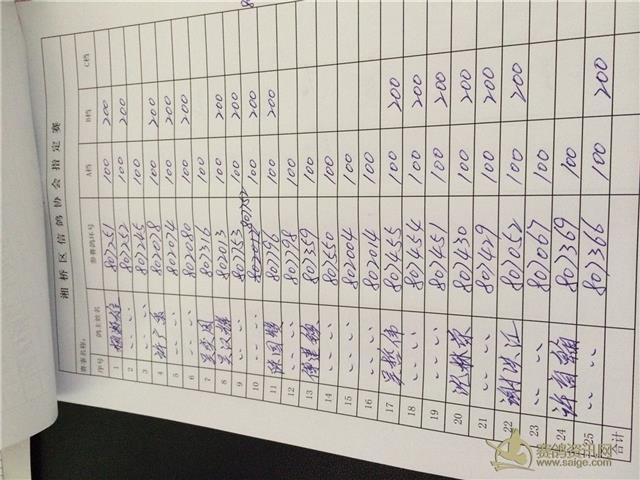 湘桥区信鸽协会指定赛
赛事名称:
序号 鸽主姓名 参赛鸽环号 A档 B档 C档
1 807251 100 200
2 〃 〃 807252 100 200
3 〃 〃 807245 100
4 802078 100 200
5 〃 〃 802074 100 200
6 〃 〃 802080 100 200
7 807316 100
8 吴汉 802013 100 200
9 〃 〃 807753 100 200
10 〃 〃 807752 100 200
11 陈国 807796 100 200
12 〃 〃 807798 100
13 807359 100
14 〃 〃 807550 100
15 〃 〃 802004 100
16 〃 〃 802014 100
17 吴 伟 807455 100 200
18 〃 〃 807454 100 200
19 〃 〃 807451 100 200
20 沈林 807430 100 200
21 〃 〃 807429 100 200
22 谢洪江 807052 100 200
23 〃 〃 807067 100
24 许 807369 100
25 〃 〃 807366 100 200
合计
赛鸽资讯网
www.saige.com